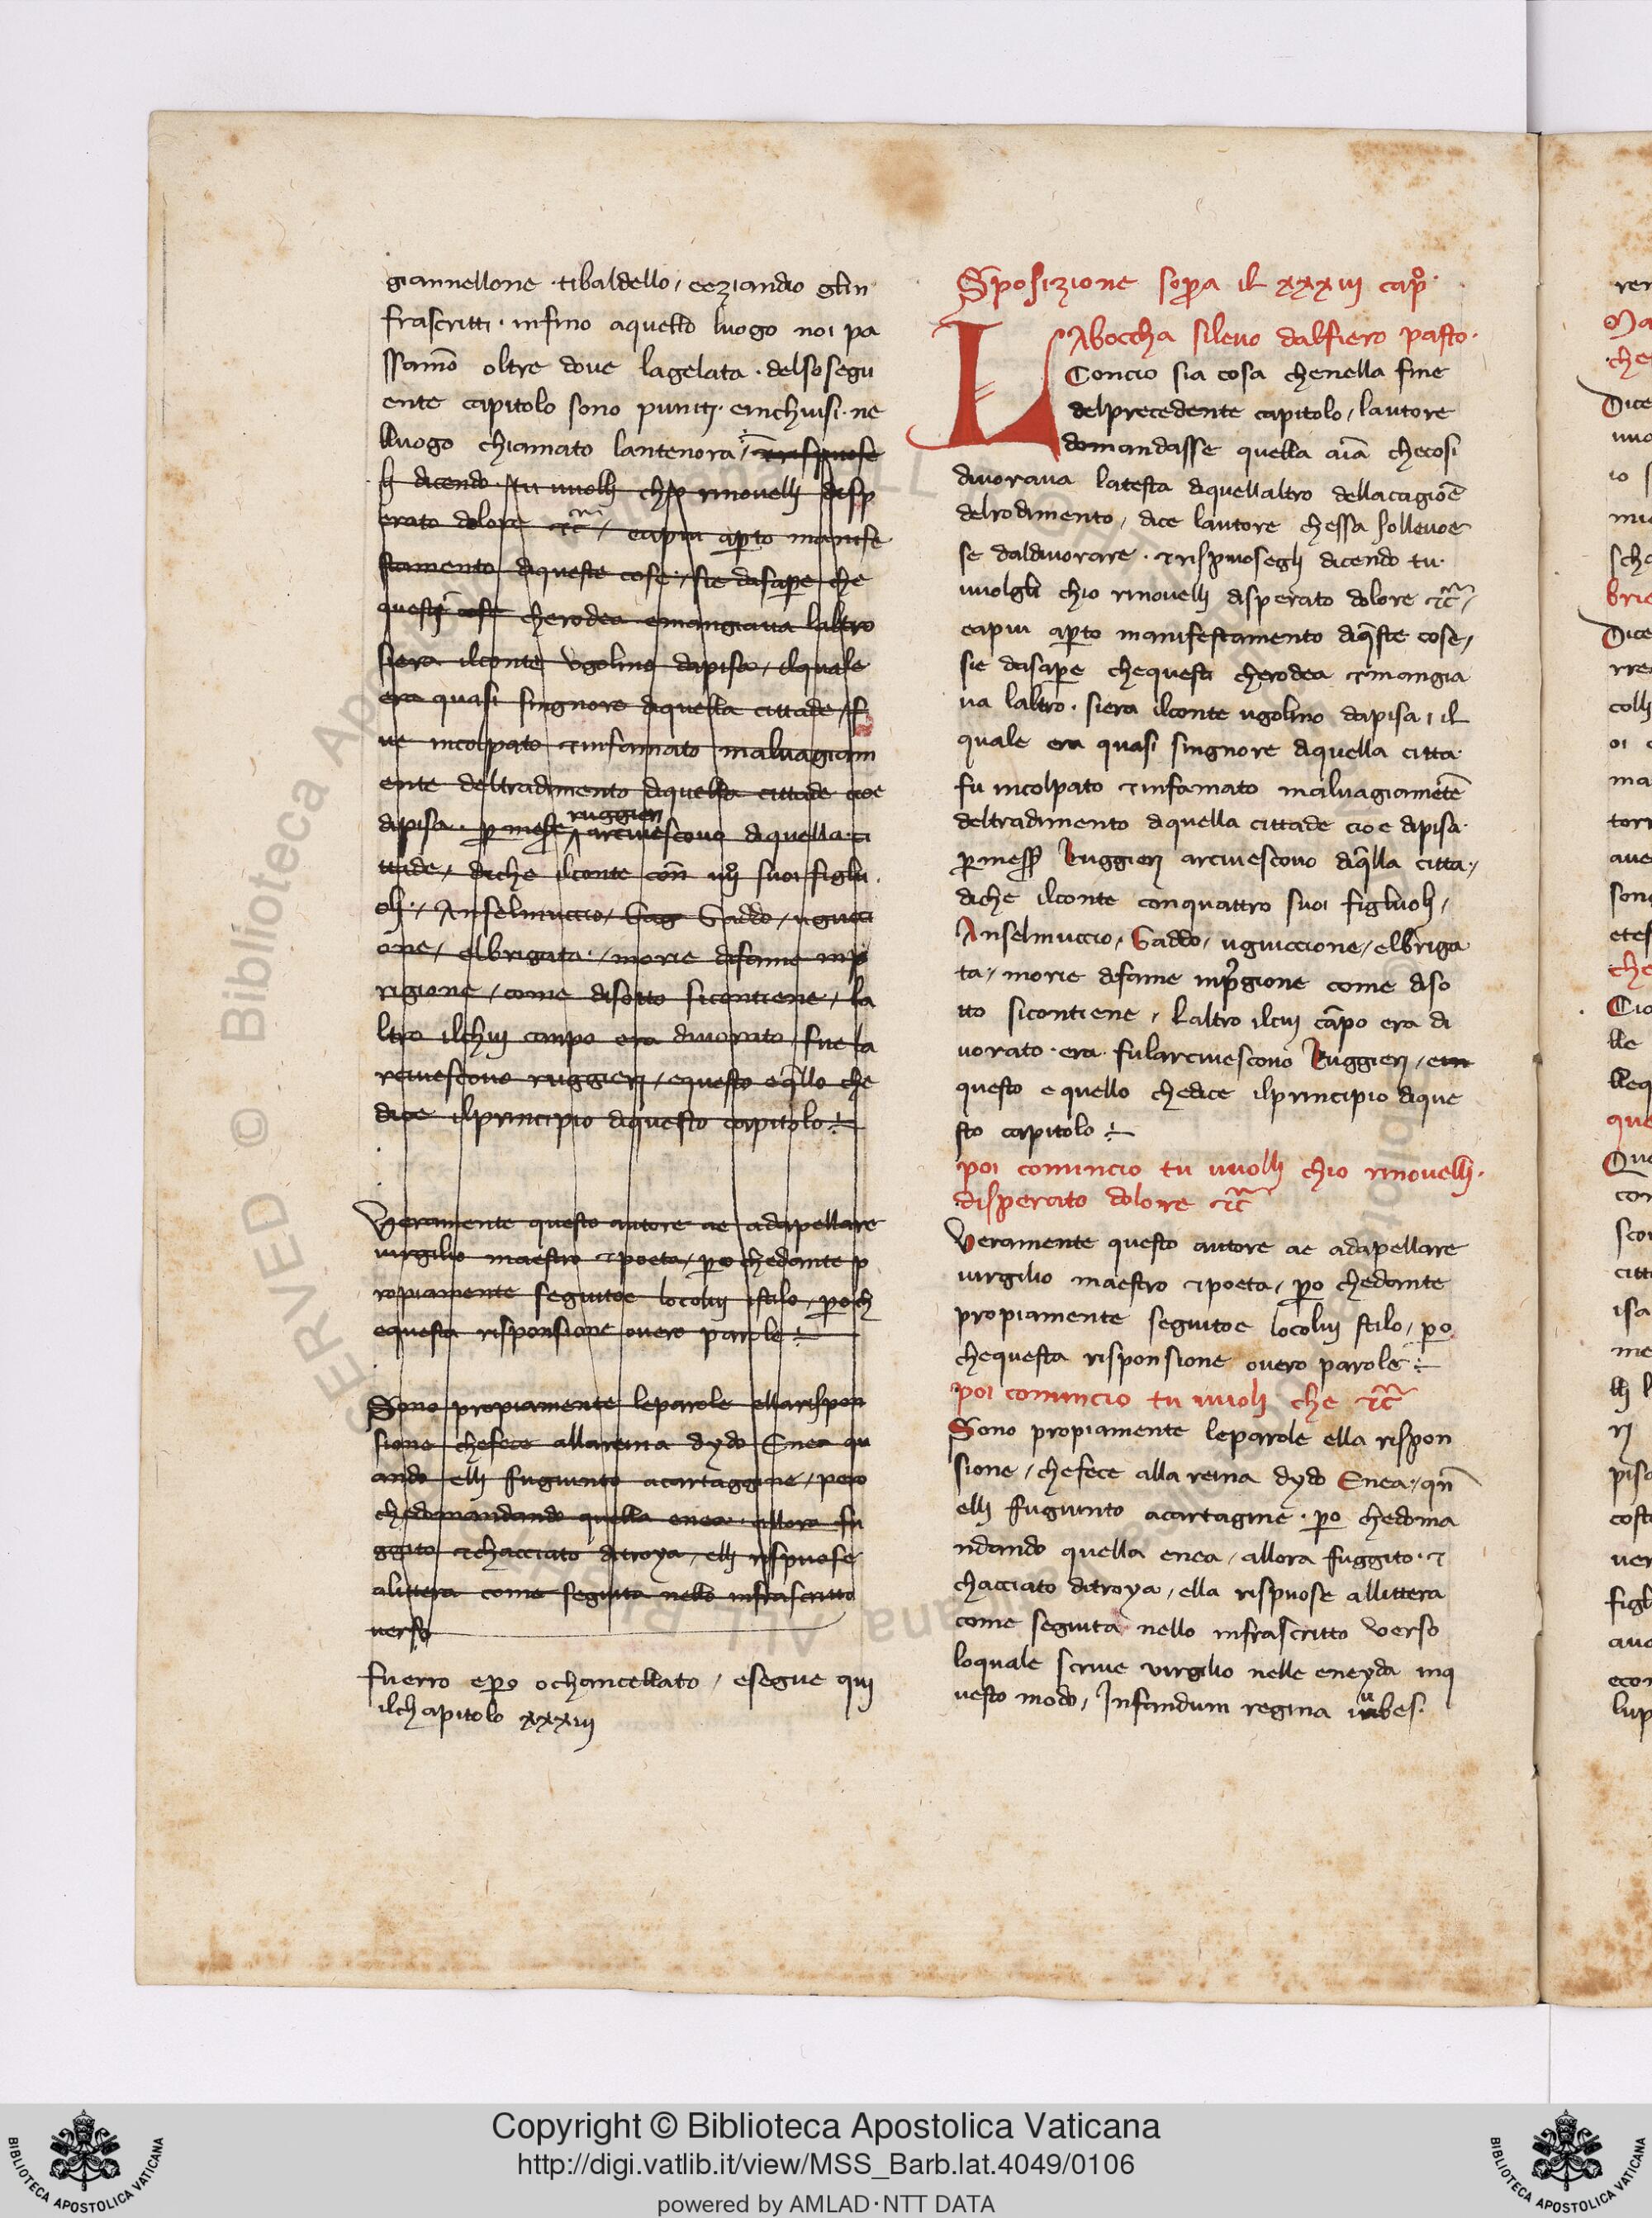 giannellone · tibaldello / eeziandio glin
frascritti · infino aquello luogo noi pa
ssamō oltre doue lagelata · delsosegu
ente capitolo sono puniti · einchiusi · ne
lluogo chiamato lantenora / rispuose
li dicendo · tu uuolli chio rinouelli disp
erato dolore ⁊c̄ / eapiu aꝑto manife
stamento diqueste cose · / sie dasaꝑe che
questi cose cherodea emangiaua laltro
siera ilconte vgolino dapisa / ilquale
era quasi singnore diquella cittade / f
ue incolpato ⁊infamato maluagiam
ente deltradimento diquella cittade cioe
dipisa · ꝑ mess ruggieri arciuescouo diquella · ci
ttade / diche ilconte con̄ iiijº suoi figliu
oli · / Anselmuccio / Gag Gaddo / uguicci
one / elbrigata · / morie difame inp
rigione / come disotto sicontiene / la
ltro ilchui canpo era diuorato / fue la
rciuescouo ruggieri / equesto eq̄llo che
dice ilprincipio diquesto capitolo ÷
Veramente questo autore ae adapellare
uirgilio maestro ⁊poeta / ꝑo chedante p
ropiamente seguitoe locolui istilo / ꝑoch
equesta risponsione ouero parole ÷
Sono propiamente leparole ellarispon
sione chefece allareina dydo Enea qu
ando elli fugiunto acartaggine / pero
chedomandando quella enea · allora fu
ggito ⁊chacciato ditroya / elli rispuose
alittera come seguita nello infrascritto
uerso
fuerro eꝑo ochancellato / esegue qui
ilchapitolo xxxiij
Sposizione sopra il xxxiij capº ·
LAboccha sileuo dalfiero pasto ·
Concio sia cosa chenella fine
delprecedente capitolo / lautore
domandasse quella aīa checosi
diuoraua latesta diquellaltro dellacagiōe
delrodimento / dice lautore chessa solleuoe
se daldiuorare · ⁊rispuosegli dicendo tu ·
uuolgli chio rinouelli disperato dolore ⁊c̄ /
eapiu aꝑto manifestamento diq̄ste cose /
sie dasaꝑe chequesti cherodea ⁊mangia
ua laltro · siera ilconte ugolino dapisa / il
quale era quasi singnore diquella citta ·
fu incolpato ⁊infamato maluagiamētē
deltradimento diquella cittade cioe dipisa ·
ꝑ mess Ruggieri arciuescouo diq̄lla citta · /
diche ilconte conquattro suoi figliuoli /
Anselmuccio / Gaddo / uguiccione / elbriga
ta / morie difame inpgione come diso
tto sicontiene / Laltro ilcui cāpo era di
uorato · era · fularciuescouo Ruggieri / ein
questo e quello chedice ilprincipio dique
sto capitolo ÷
poi comincio tu uuolli chio rinouelli ·
disperato dolore ⁊c̄
Veramente questo autore ae adapellare
uirgilio maestro ⁊poeta / ꝑo chedante
propiamente seguitoe locolui stilo / ꝑo
chequesta risponsione ouero parole ÷
poi comincio tu uuoli che ⁊c̄
Sono propiamente leparole ella rispon
sione / chefece alla reina dydo Enea · / qn̄
elli fugiunto acartagine · ꝑo chedoma
ndando quella enea / allora fuggito · ⁊
chacciato ditroya / ella rispuose allittera
come seguita nello infrascritto verso
loquale scriue virgilio nelle eneyda inq
uesto modo / Infandum regina iubes ·
Copyright © Biblioteca Apostolica Vaticana
http://digi.vatlib.it/view/MSS_Barb.lat.4049/0106
powered by AMLAD·NTT DATA
BIBLIOTECA APOSTOLICA VATICANA
BIBLIOTECA APOSTOLICA VATICANA